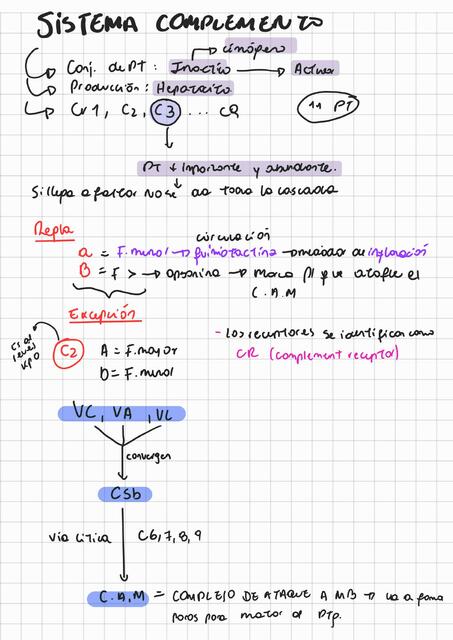 SISTEMA COMPLEMENTO
cimógero
Conj. de PT : Inactio → Activa
Producción : Hepatocito
Cr1, C2, C3 ... CQ
11 PT
PT + Importante y abundante.
Si llega a faltar No se da toda la cascada
Regla
circulación
a = F. menor → quimiotactina → mediador de inflamación
B = F > → opsonina → marca pl que ataque el
C.A.M
Excepción
Es al revés KPO
C2
A = F. mayor
b = F. menor
- Los receptores se identifican como
CR (complement receptor)
VC, VA, VL
convergen
C5b
Vía Lítica
C6,7,8,9
C.A.M = COMPLEJO DE ATAQUE A MB → va a forma
poros para matar al ptp.